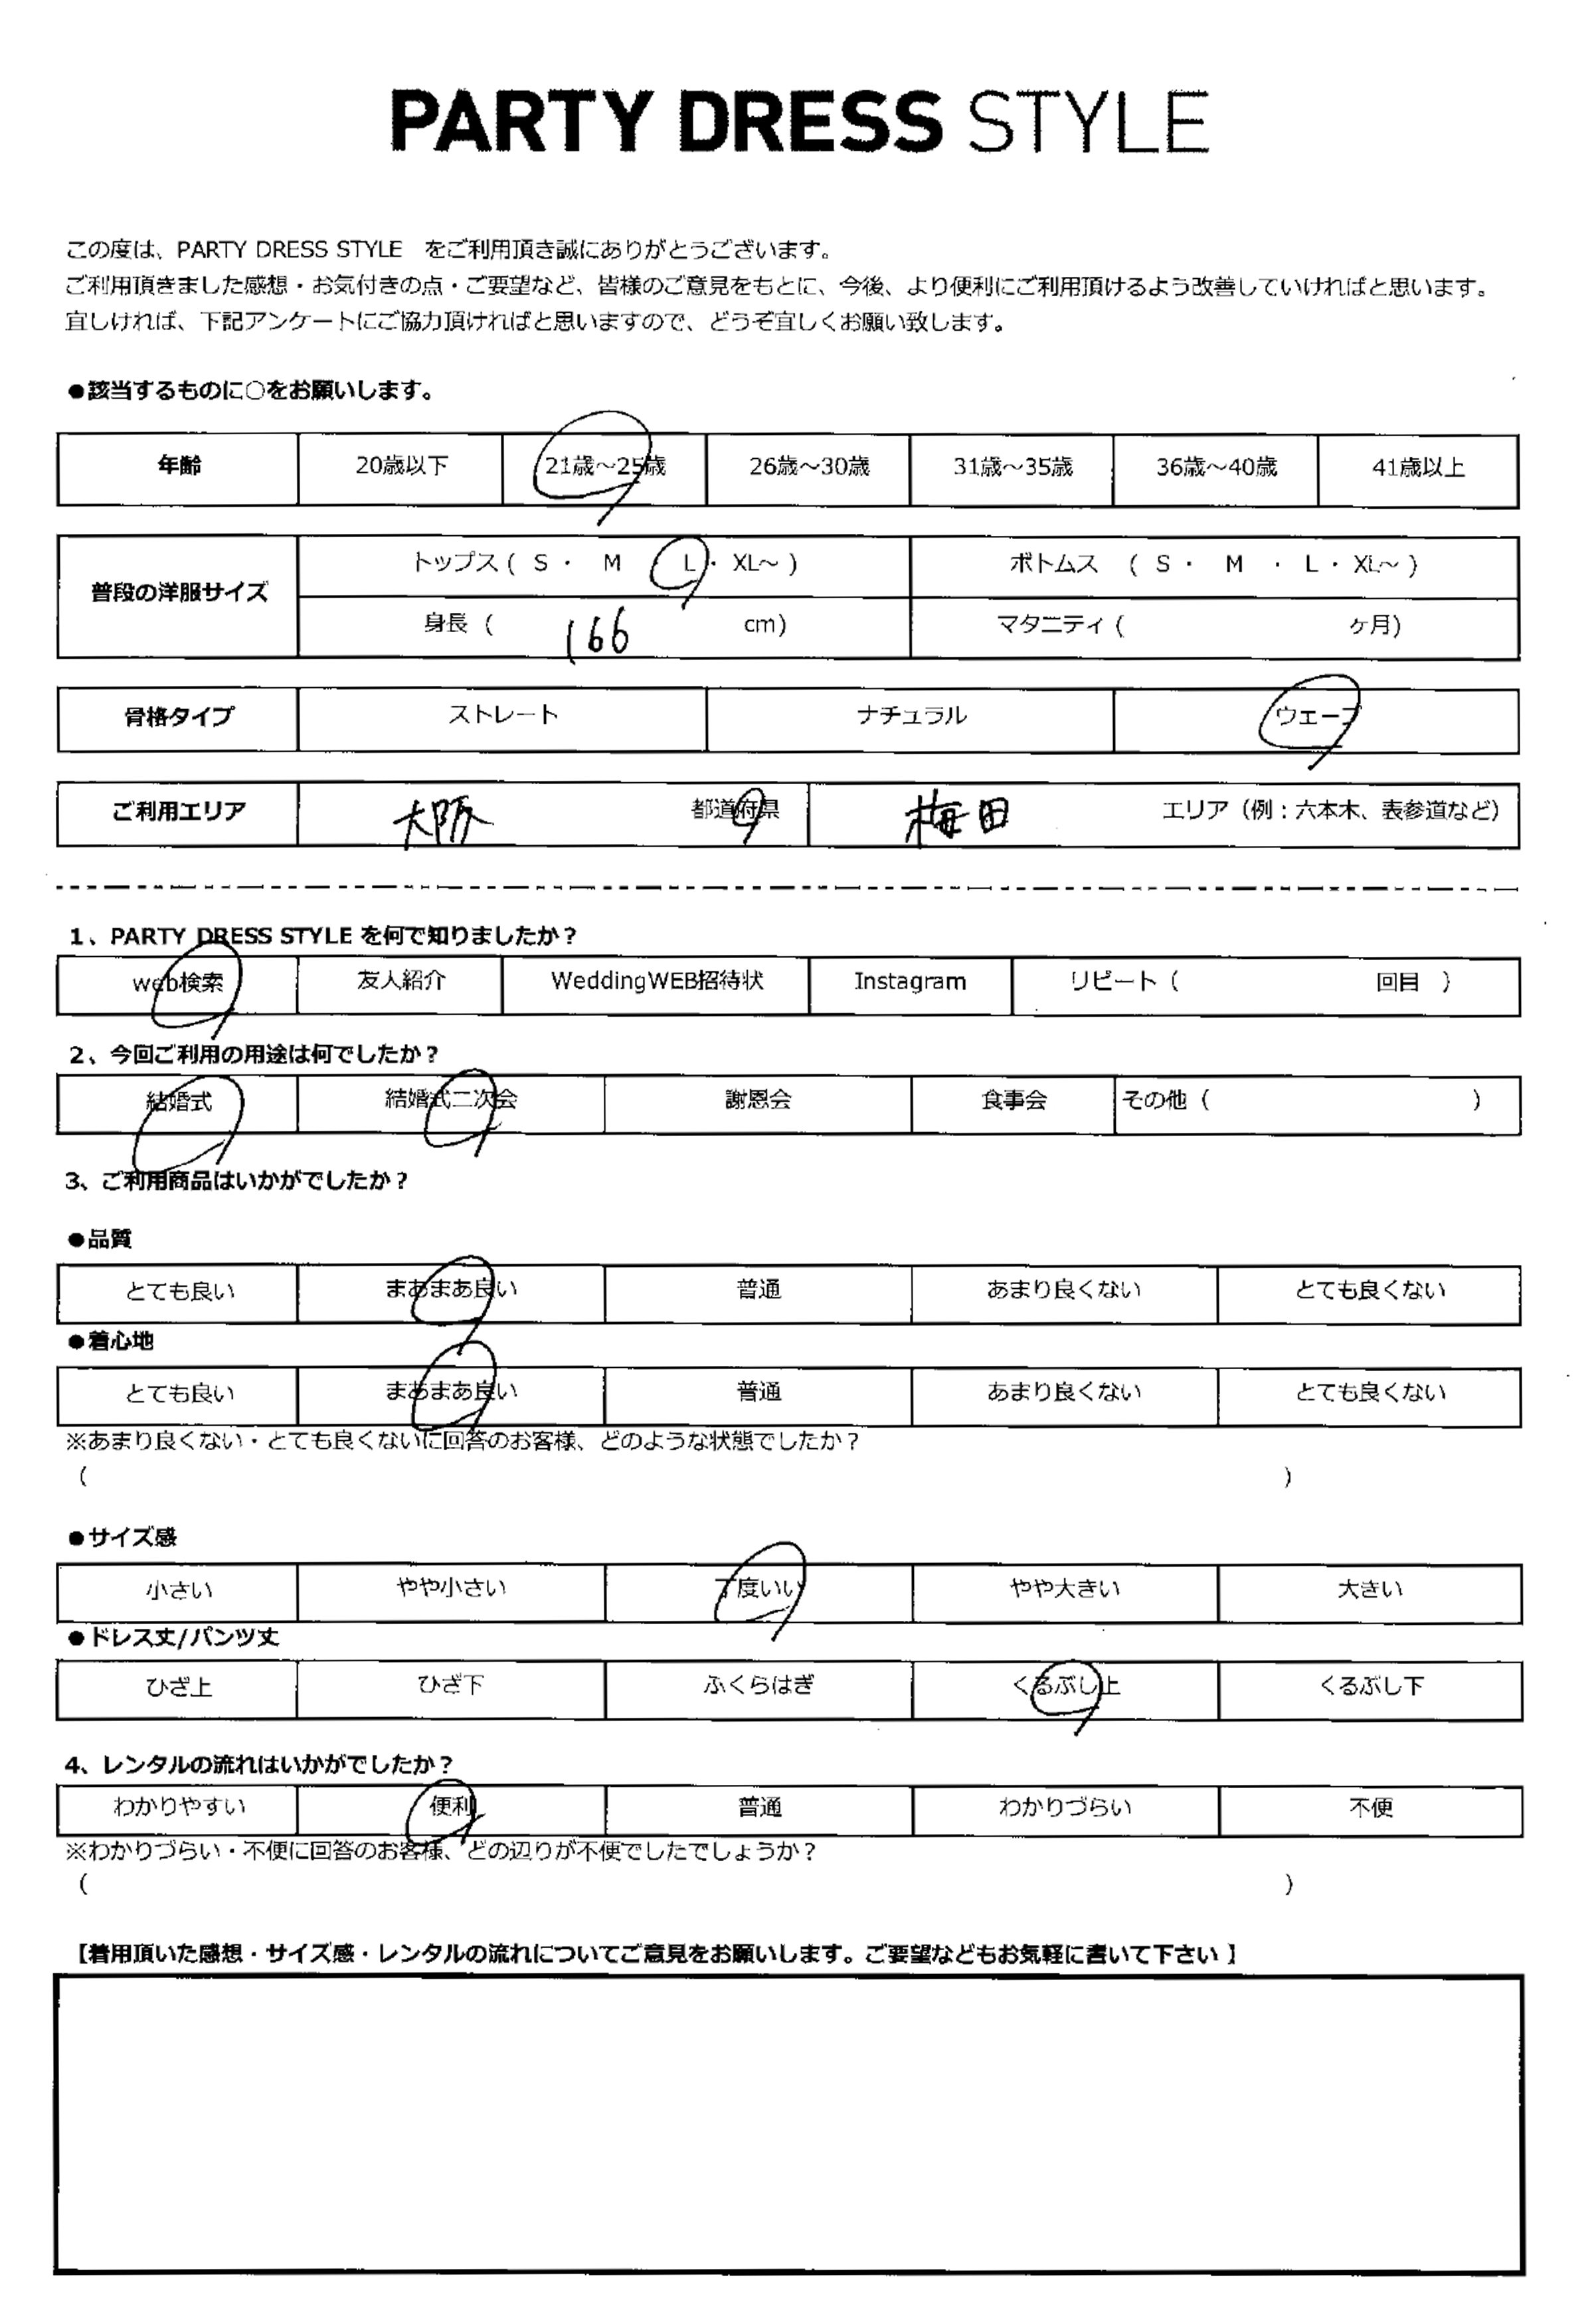 PARTY DRESS STYLE
この度は、PARTY DRESS STYLE　をご利用頂き誠にありがとうございます。
ご利用頂きました感想・お気付きの点・ご要望など、皆様のご意見をもとに、今後、より便利にご利用頂けるよう改善していければと思います。
宜しければ、下記アンケートにご協力頂ければと思いますので、どうぞ宜しくお願い致します。
●該当するものに○をお願いします。
年齢 20歳以下 21歳～25歳 26歳～30歳 31歳～35歳 36歳～40歳 41歳以上
普段の洋服サイズ トップス ( S ・ M L ・ XL～ ) ボトムス ( S ・ M ・ L ・ XL～ )
身長 ( 166 cm) マタニティ ( ヶ月)
骨格タイプ ストレート ナチュラル ウェーブ
ご利用エリア 大阪 都道府県 梅田 エリア（例：六本木、表参道など）
1、PARTY DRESS STYLE を何で知りましたか？
web検索 友人紹介 WeddingWEB招待状 Instagram リピート（ 回目 ）
2、今回ご利用の用途は何でしたか？
結婚式 結婚式二次会 謝恩会 食事会 その他（ ）
3、ご利用商品はいかがでしたか？
●品質
とても良い まあまあ良い 普通 あまり良くない とても良くない
●着心地
とても良い まあまあ良い 普通 あまり良くない とても良くない
※あまり良くない・とても良くないに回答のお客様、どのような状態でしたか？
（ ）
●サイズ感
小さい やや小さい 丁度いい やや大きい 大きい
●ドレス丈/パンツ丈
ひざ上 ひざ下 ふくらはぎ くるぶし上 くるぶし下
4、レンタルの流れはいかがでしたか？
わかりやすい 便利 普通 わかりづらい 不便
※わかりづらい・不便に回答のお客様、どの辺りが不便でしたでしょうか？
（ ）
【着用頂いた感想・サイズ感・レンタルの流れについてご意見をお願いします。ご要望などもお気軽に書いて下さい 】